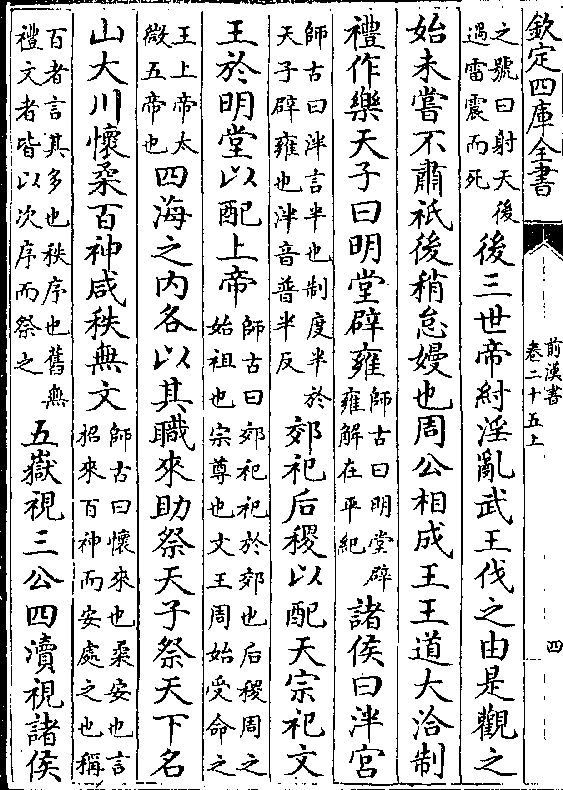 欽定四庫全書
前漢書
卷二十五上
四
之號曰射天後
遇雷震而死
後三世帝紂淫亂武王伐之由是觀之
始未嘗不肅祗後稍怠嫚也周公相成王王道大洽制
禮作樂天子曰明堂辟雍
師古曰明堂辟
雍解在平紀
諸侯曰泮宮
師古曰泮言半也制度半於
天子辟雍也泮音普半反
郊祀后稷以配天宗祀文
王於明堂以配上帝
師古曰郊祀祀於郊也后稷周之
始祖也宗尊也文王周始受命之
王上帝太
微五帝也
四海之內各以其職來助祭天子祭天下名
山大川懷柔百神咸秩無文
師古曰懷來也柔安也言
招來百神而安處之也稱
百者言其多也秩序也舊無
禮文者皆以次序而祭之
五嶽視三公四瀆視諸侯